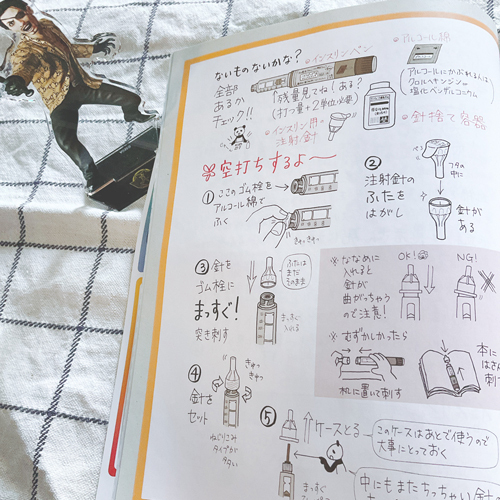 ないものないかな?
全部
あるか
チェック!!
インスリンペン
「残量見てね！ある？
(打つ量+2単位必要)
インスリン用
注射針
アルコール綿
アルコールにかぶれる人は
クロルヘキシジン
塩化ベンザルコニウム
針捨て容器
空打ちするよ〜
①ここのゴム栓を
アルコール綿で
ふく
きゅっきゅっ
②
注射針の
ふたを
はがし
フタの
中に
針が
ある
③針を
ゴム栓に
まっすぐ!
突き刺す
ふたは
まだ
そのまま
まっすぐ
※ななめに
入れると
針が
曲がっちゃう
ので注意!
OK!
NG!
※むずかしかったら
机に置いて刺す
本に
はさん
刺す
④
針を
セット
きゅっ
きゅっ
ねじこみ
タイプが
多い
⑤
ケースとる
このケースはあとで使うので
大事にとっておく
中にもまたちっちゃい針